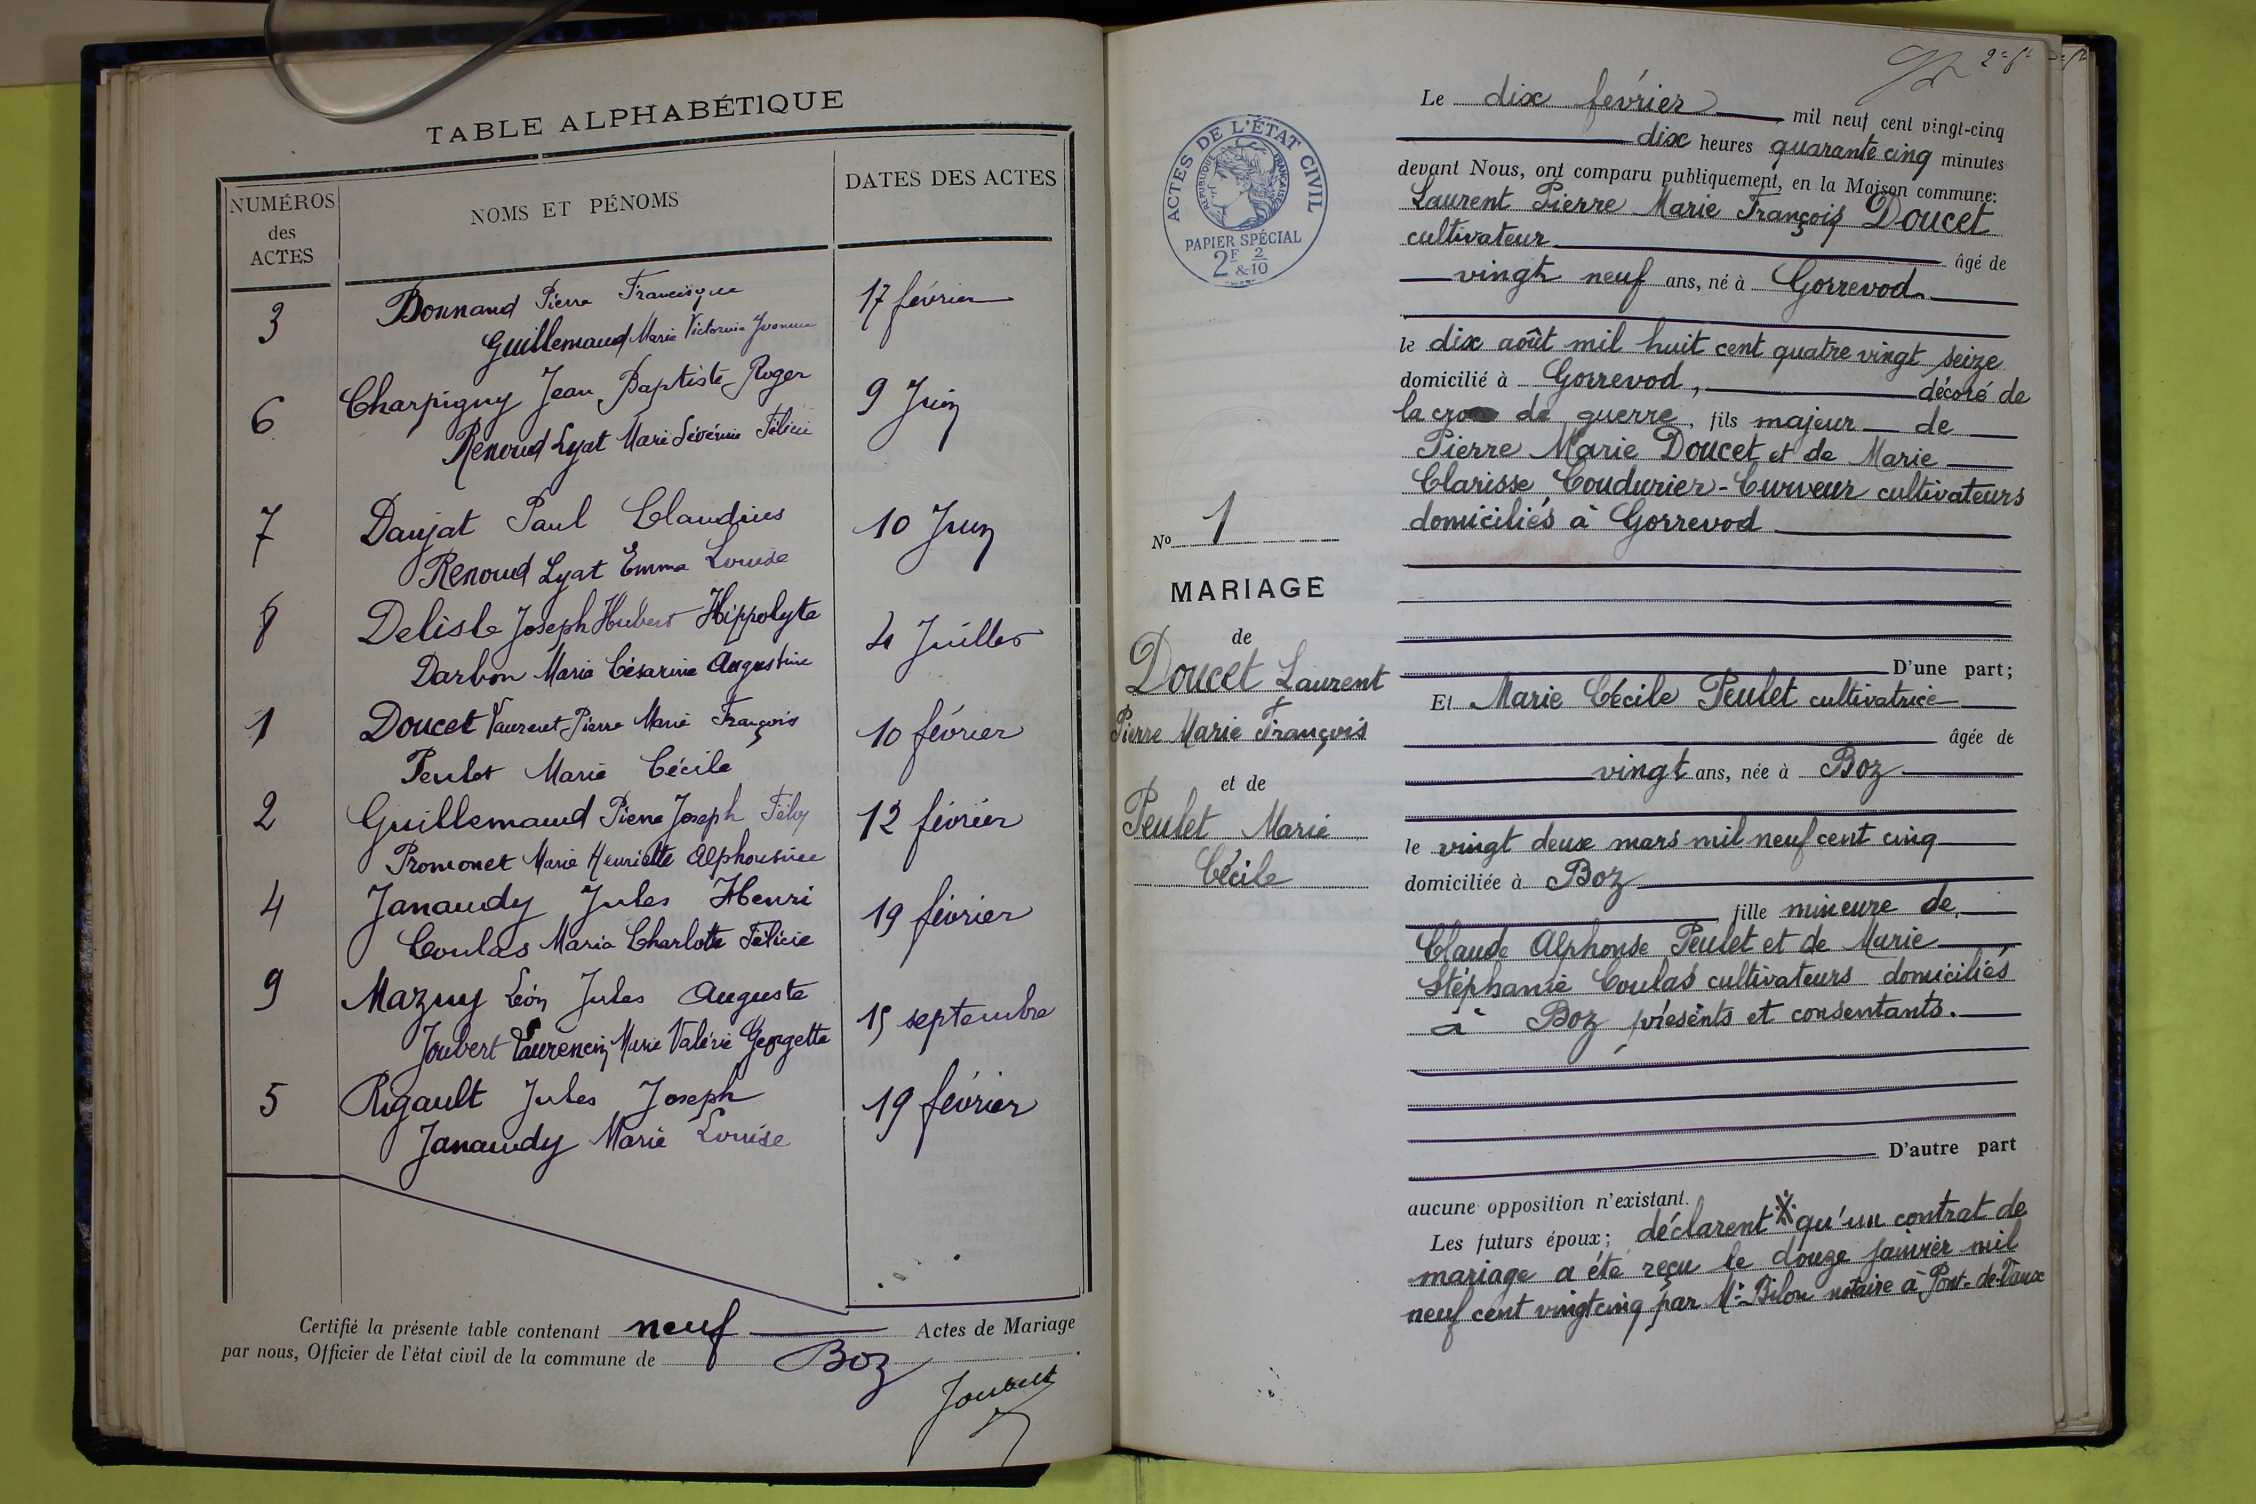 TABLE ALPHABÉTIQUE
NUMÉROS
des
ACTES
NOMS ET PÉNOMS
DATES DES ACTES
3 Bonnand Pierre Francisque 17 février
Guillemaud Marie Victorine Yvonne
6 Charpigny Jean Baptiste Roger 9 Juin
Renoud Lyat Marie Sévérine Félicie
7 Daujat Paul Claudius 10 Juin
Renoud Lyat Emma Louise
8 Delisle Joseph Hubert Hippolyte 4 Juillet
Darbon Marie Césarine Augustine
1 Doucet Laurent Pierre Marie François 10 février
Peulet Marie Cécile
2 Guillemaud Pierre Joseph Félix 12 février
Promonet Marie Henriette Alphonsine
4 Janaudy Jules Henri 19 février
Coulas Maria Charlotte Félicie
9 Mazuy Léon Jules Auguste 15 septembre
Joubert Laurencin Marie Valérie Georgette
5 Rigault Jules Joseph 19 février
Janaudy Marie Louise
Certifié la présente table contenant neuf Actes de Mariage
par nous, Officier de l'état civil de la commune de Boz
Joubert
ACTES DE L'ÉTAT CIVIL
RÉPUBLIQUE FRANÇAISE
PAPIER SPÉCIAL
2F & 2/10
No 1
MARIAGE
de
Doucet Laurent
Pierre Marie François
et de
Peulet Marie
Cécile
Le dix février mil neuf cent vingt-cinq
dix heures quarante cinq minutes
devant Nous, ont comparu publiquement, en la Maison commune:
Laurent Pierre Marie François Doucet
cultivateur âgé de
vingt neuf ans, né à Gorrevod
le dix août mil huit cent quatre vingt seize
domicilié à Gorrevod, décoré de
la croix de guerre, fils majeur de
Pierre Marie Doucet et de Marie
Clarisse Coudurier-Curveur cultivateurs
domiciliés à Gorrevod
D'une part;
Et Marie Cécile Peulet cultivatrice
âgée de
vingt ans, née à Boz
le vingt deux mars mil neuf cent cinq
domiciliée à Boz
fille mineure de
Claude Alphonse Peulet et de Marie
Stéphanie Coulas cultivateurs domiciliés
à Boz présents et consentants.
D'autre part
aucune opposition n'existant.
Les futurs époux; déclarent qu'un contrat de
mariage a été reçu le douze janvier mil
neuf cent vingt cinq par Me Bilon notaire à Pont-de-Vaux